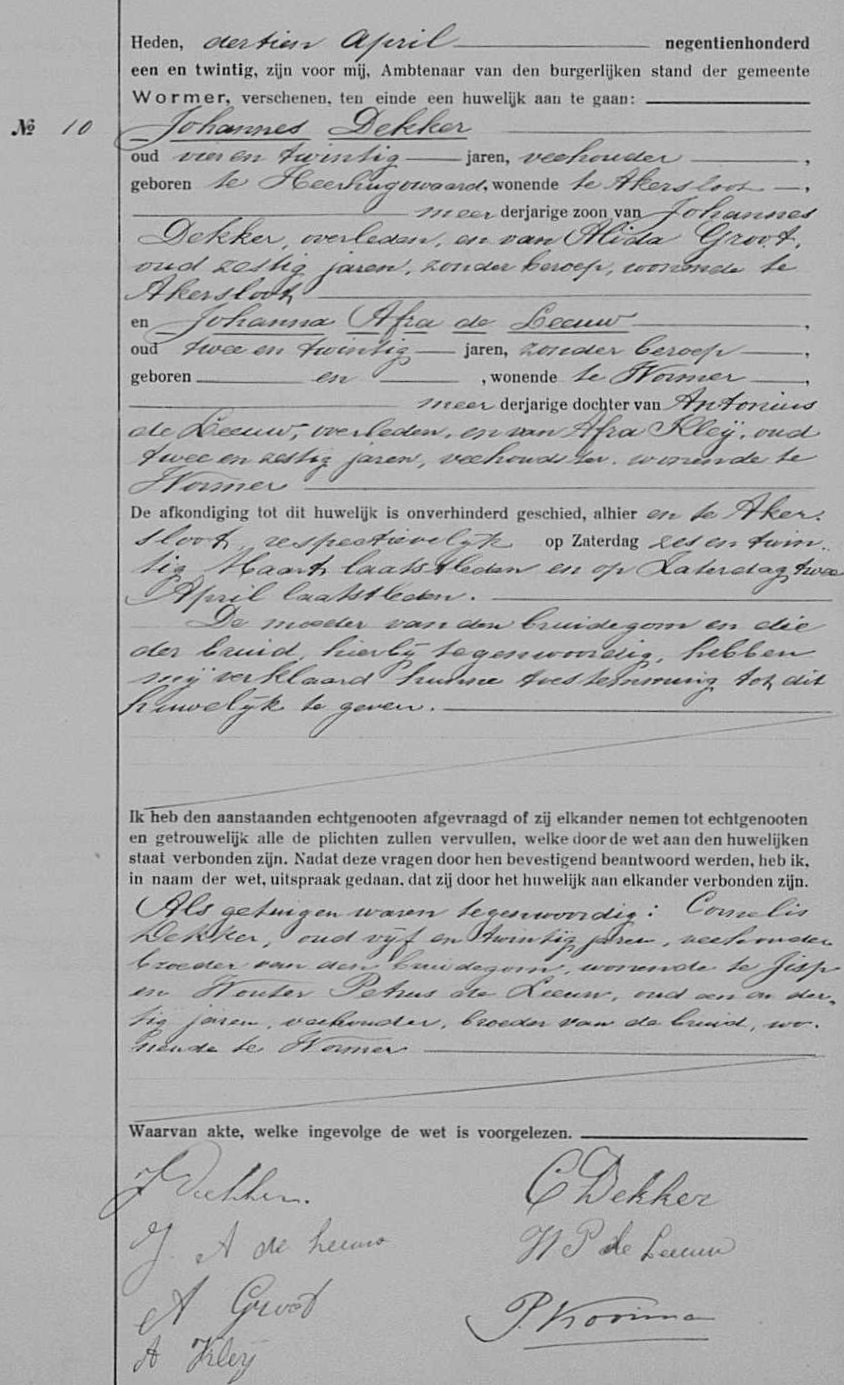 Heden, dertien April negentienhonderd
een en twintig, zijn voor mij, Ambtenaar van den burgerlijken stand der gemeente
Wormer, verschenen, ten einde een huwelijk aan te gaan:
№ 10 Johannes Dekker
oud vier en twintig jaren, veehouder,
geboren te Heerhugowaard, wonende te Akersloot,
meer derjarige zoon van Johannes
Dekker, overleden, en van Alida Groot,
oud zestig jaren, zonder beroep, wonende te
Akersloot
en Johanna Afra de Leeuw,
oud twee en twintig jaren, zonder beroep,
geboren en, wonende te Wormer,
meer derjarige dochter van Antonius
de Leeuw, overleden, en van Afra Kleij, oud
twee en zestig jaren, veehoudster, wonende te
Wormer
De afkondiging tot dit huwelijk is onverhinderd geschied, alhier en te Aker-
sloot, respectievelijk op Zaterdag zes en twin-
tig Maart laatstleden en op Zaterdag twee
April laatstleden.
De moeder van den bruidegom en die
der bruid, hierbij tegenwoordig, hebben
mij verklaard hunne toestemming tot dit
huwelijk te geven.
Ik heb den aanstaanden echtgenooten afgevraagd of zij elkander nemen tot echtgenooten
en getrouwelijk alle de plichten zullen vervullen, welke door de wet aan den huwelijken
staat verbonden zijn. Nadat deze vragen door hen bevestigend beantwoord werden, heb ik,
in naam der wet, uitspraak gedaan, dat zij door het huwelijk aan elkander verbonden zijn.
Als getuigen waren tegenwoordig: Cornelis
Dekker, oud vijf en twintig jaren, veehouder
broeder van den bruidegom, wonende te Jisp
en Wouter Petrus de Leeuw, oud een en der-
tig jaren, veehouder, broeder van de bruid, wo-
nende te Wormer
Waarvan akte, welke ingevolge de wet is voorgelezen.
J Dekker. C Dekker
J. A de Leeuw W P de Leeuw
A Groot P. Kooiman
A Kleij